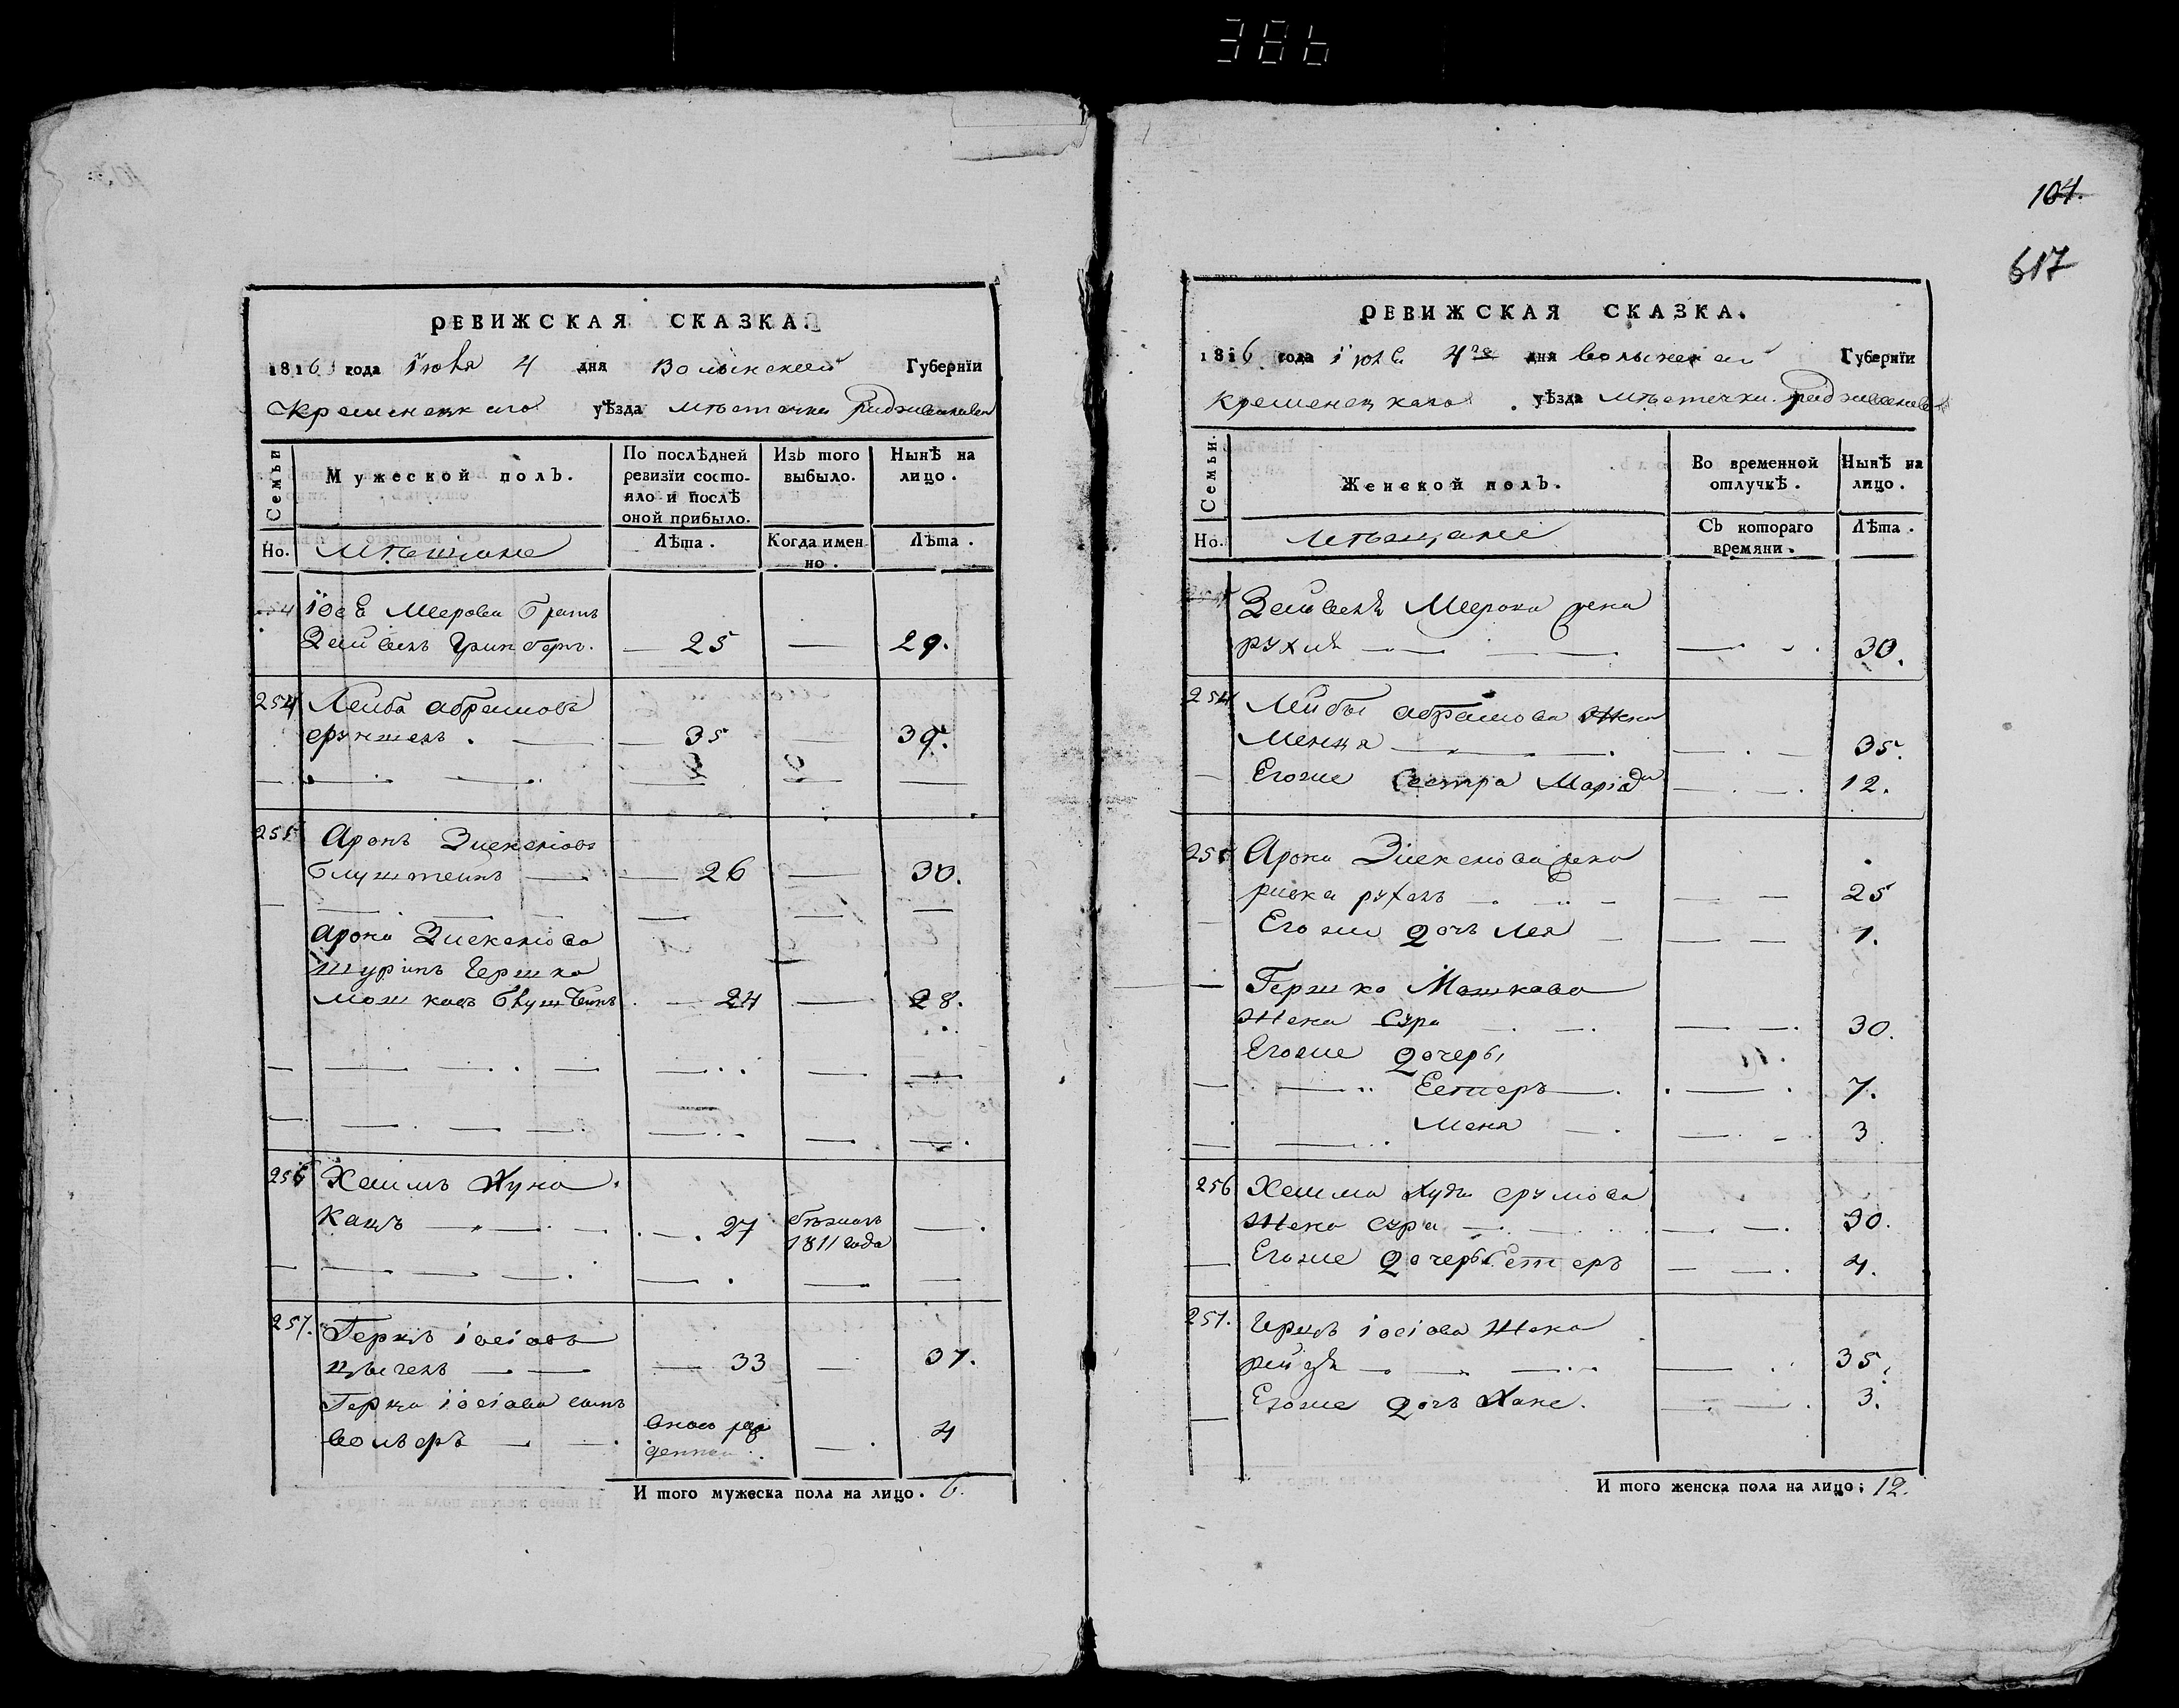 386
104.
617
РЕВИЖСКАЯ СКАЗКА.
1816 года Июля 4 дня Волынской Губернїи
Кременецкаго уѣзда мѣстечка
Семьи
Мужеской полъ.
По послѣдней ревизїи состояло и послѣ оной прибыло.
Изъ того выбыло.
Нынѣ на лицо.
Но. Мѣщане
Лѣта.
Когда именно.
Лѣта.
Меерова братъ
Зейвель Гринберъ. — 25 — 29.
254 Лейба Абрамовъ
— 35 — 39.
255 Аронъ
— 26 — 30.
Арона
шуринъ Гершко
Мошковъ — 24 — 28.
256 Хаимъ
Кацъ — 27 бѣжалъ 1811 года —
257. Герцъ Іосіовъ
— 33 — 37.
Герца Іосіова сынъ
Вольфъ — вново рожденной — 4
И того мужеска пола на лицо. 6.
РЕВИЖСКАЯ СКАЗКА.
1816 года Июля 4го дня Волынской Губернїи
Кременецкаго уѣзда мѣстечка
Семьи.
Женской полъ.
Во временной отлучкѣ.
Нынѣ на лицо.
Но. Мѣщане
Съ котораго времяни.
Лѣта.
Зейвеля Меерова жена
Рухля — 30.
254 Лейбы Абрамова жена
Менця — 35.
Егоже сестра — 12.
255 Арона жена
Ривка Рухель — 25
Егоже дочь Лея — 1.
Гершка Мошкова
жена Сура — 30.
Егоже дочеры
Естеръ — 7.
Меня — 3
256 Хаима
жена Сура — 30.
Егоже дочерь Естеръ — 4.
257. Герца Іосіова жена
Рейзя — 35.
Егоже дочь Хане. — 3.
И того женска пола на лицо; 12.